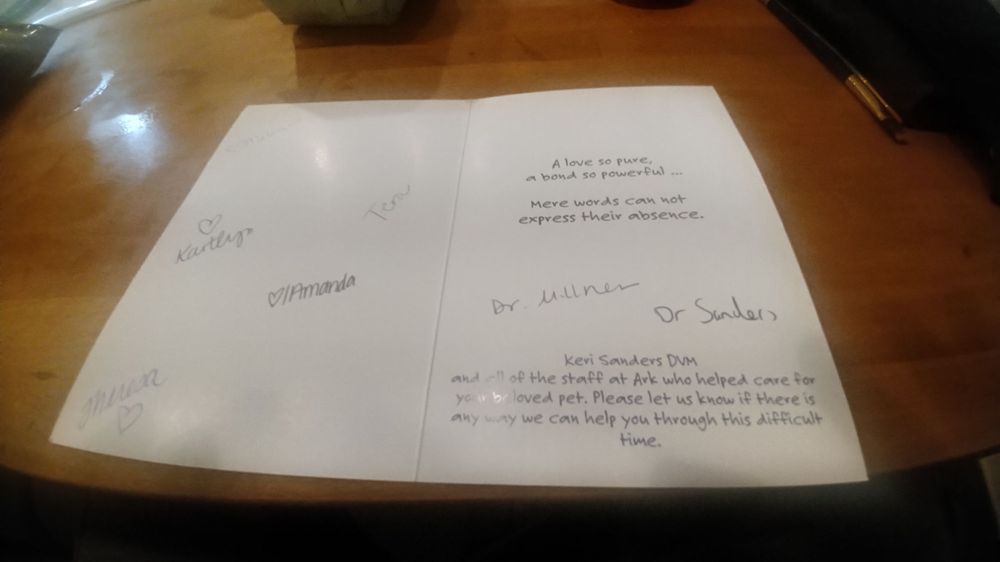 Tom
♡
Kaitlyn
♡/Amanda
Theresa
♡
A love so pure,
a bond so powerful ...
Mere words can not
express their absence.
Dr. Millner
Dr Sanders
Keri Sanders DVM
and all of the staff at Ark who helped care for
your beloved pet. Please let us know if there is
any way we can help you through this difficult
time.